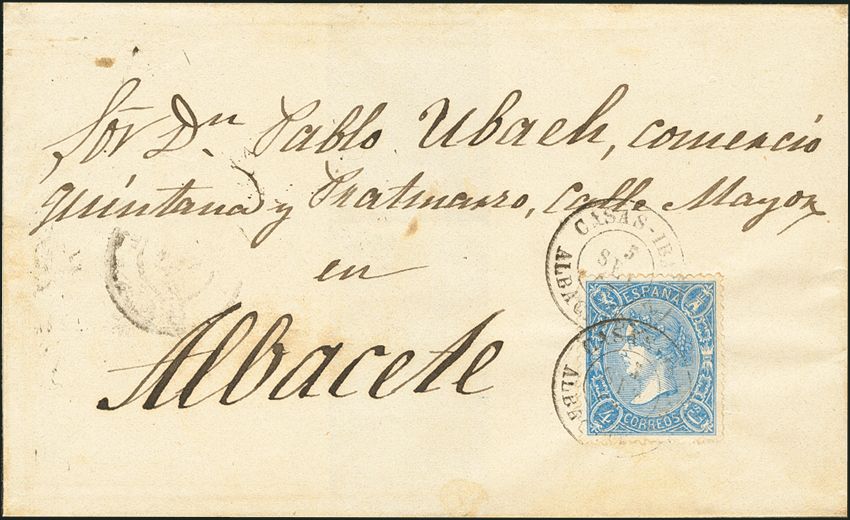 Sor Dn Pablo Ubach, comercio
Quintana y Pratmarso, Calle Mayor
en
Albacete
CASAS-IB
5
ALBAC
ESPAÑA
CASAS
ALBAC
4 CORREOS Cs